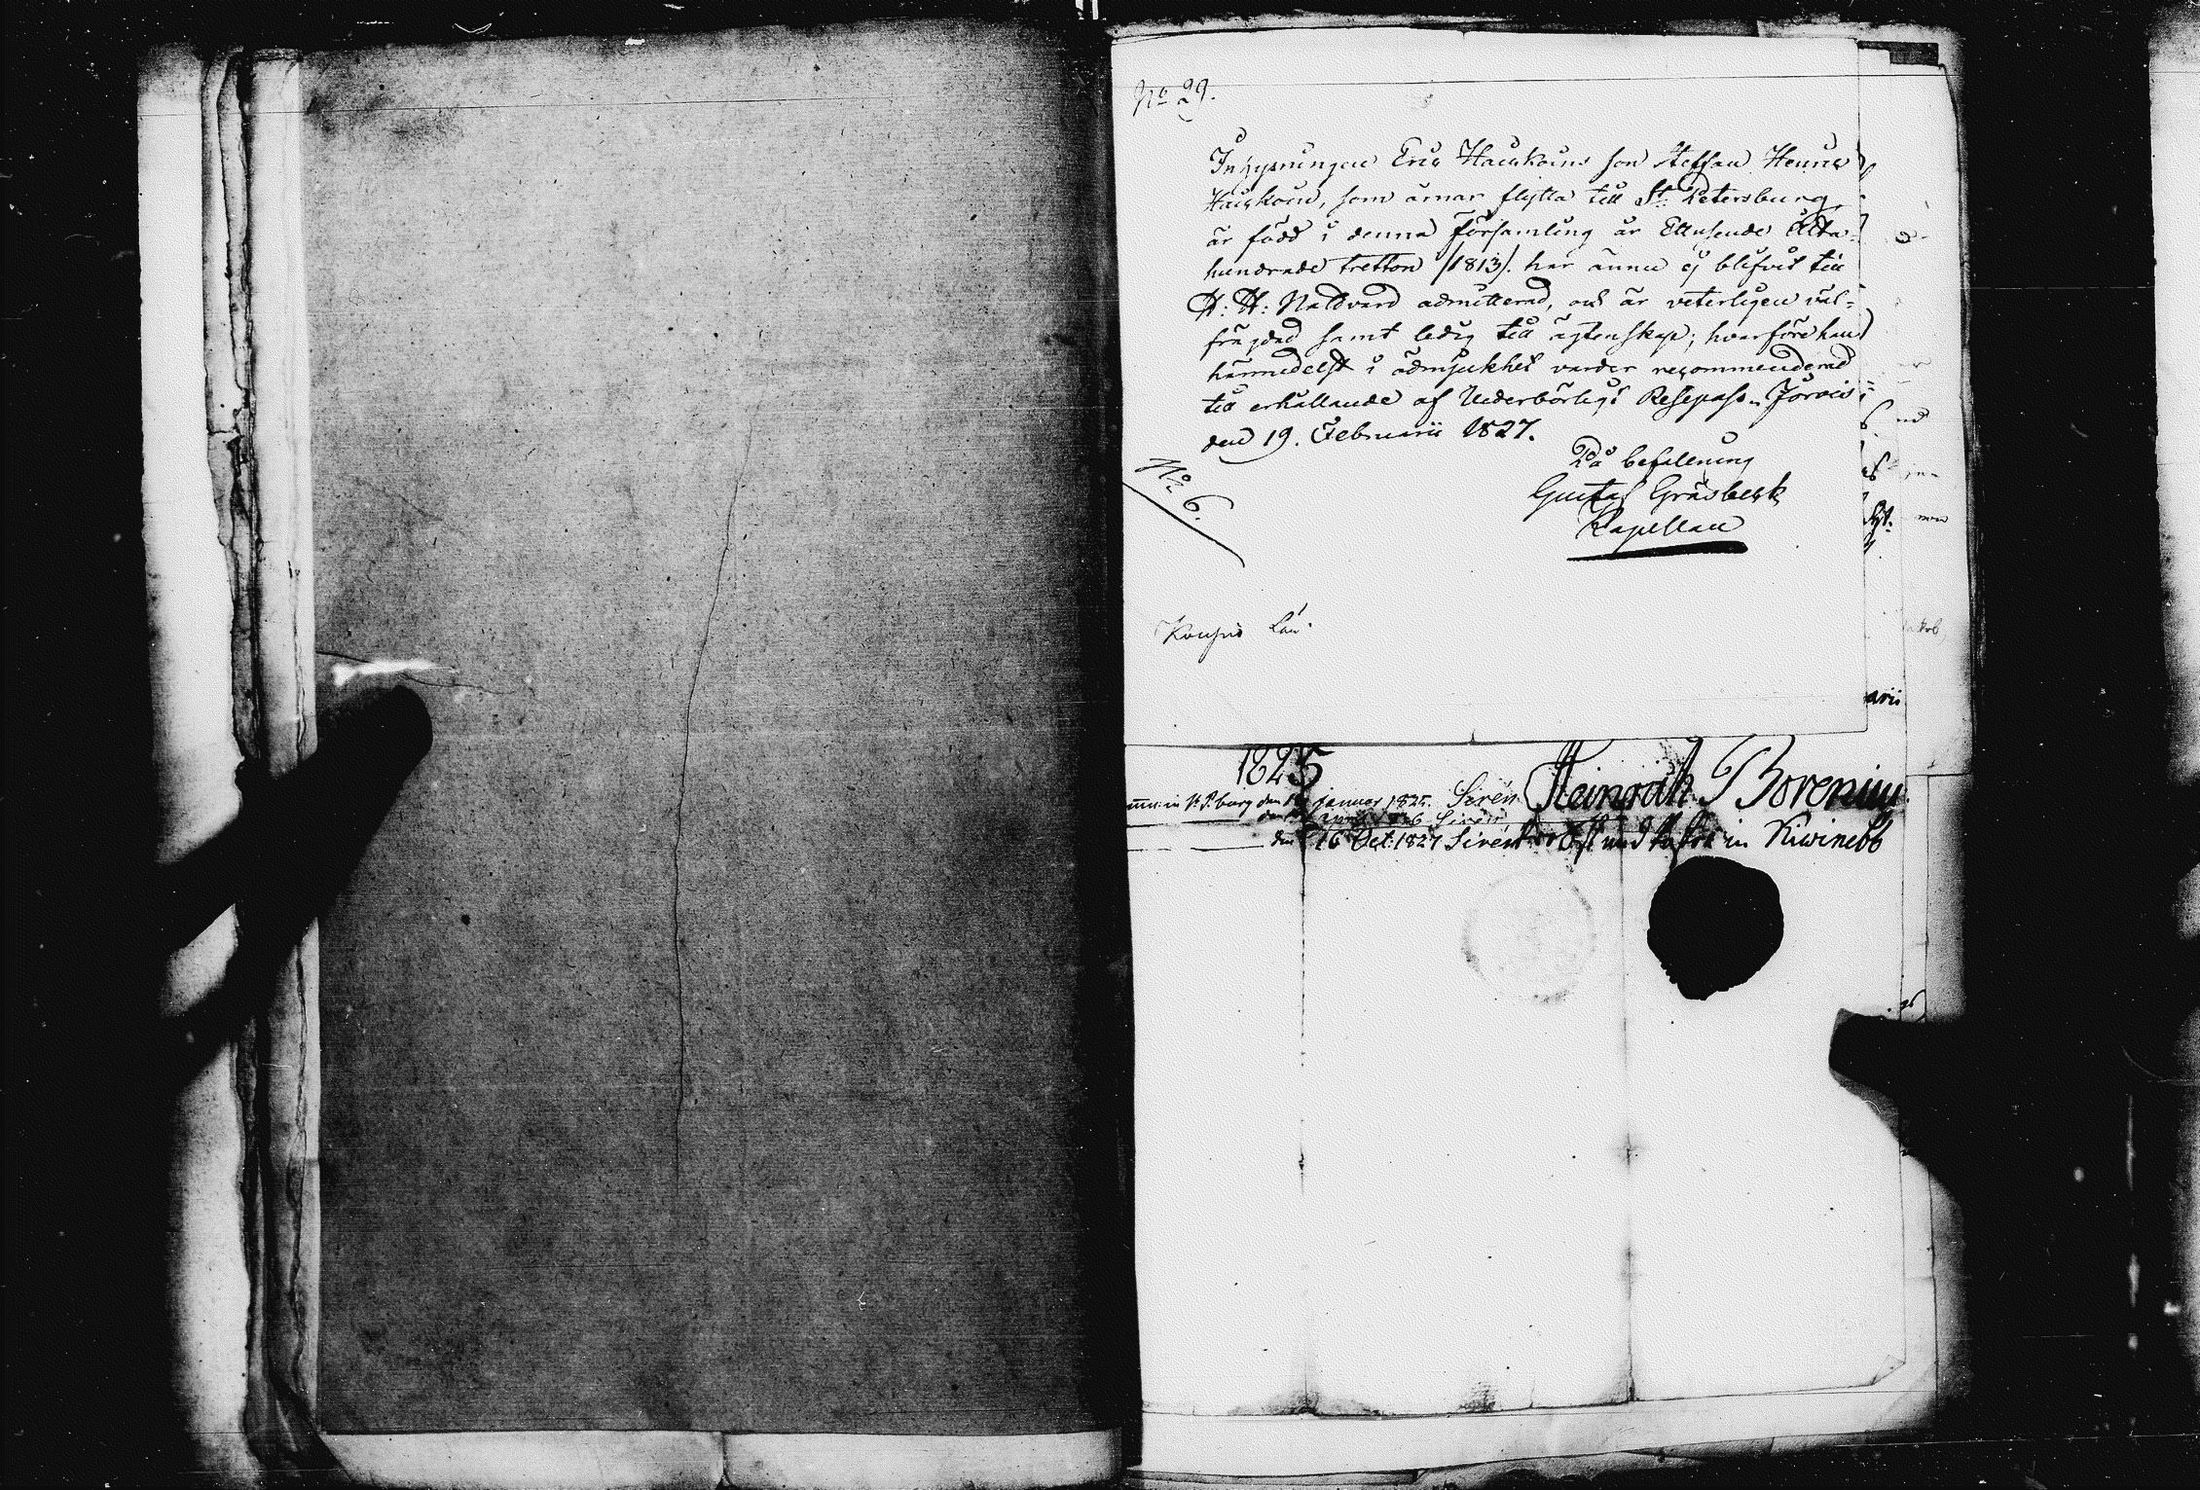 No 29.
Inhysningen Eric Hauskoins son Steffan Henric
Hauskoin, som ärnar flytta till St. Petersburg,
är född i denna Församling år Ettusende Åtta-
hundrade tretton /1813/. har ännu ej blifvit till
H: H: Nattvard admitterad, och är veterligen väl-
frägdad samt ledig till ägtenskap; hvarföre han
härmedelst i ödmjukhet varder recommenderad
till erhållande af Vederbörligt Resepass. Jorois
den 19. Februarii 1827.
På befallning
Gustaf Gråsbeck
Kapellan
No 6.
Län
arii
1825
in St. P.burg den januar 1825. Sirén Heinrich Borenius
1826 Sirén
den 16 Oct. 1827 Sirén Probst und Pastor in Kiwinebb